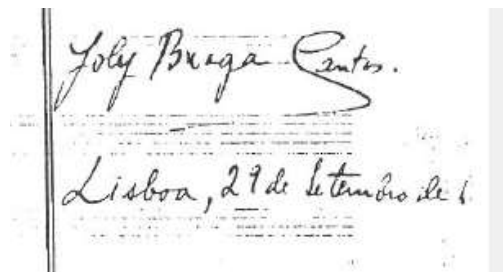 Joly Braga Santos.
Lisboa, 29 de Setembro de